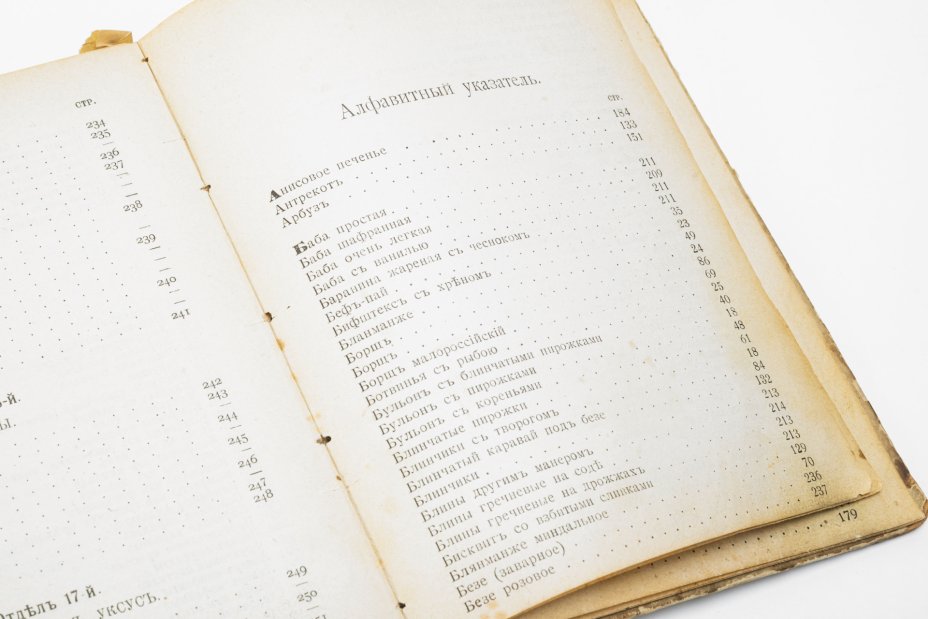 стр.
234
235
236
237
—
—
238
—
239
—
—
240
—
—
241
242
243
—
244
—
245
—
246
—
247
248
-й.
ы.
Отдѣлъ 17-й.
уксусъ.
249
—
250
—
Алфавитный указатель.
стр.
Анисовое печенье 184
Антрекотъ 133
Арбузъ 151
Баба простая 211
Баба шафранная 209
Баба очень легкая 211
Баба съ ванилью 211
Баранина жареная съ чеснокомъ 35
Бефъ-пай 23
Бифштексъ съ хрѣномъ 49
Бланманже 24
Борщъ 86
Борщъ 69
Борщъ малороссійскій 25
Ботвинья съ рыбою 40
Бульонъ съ блинчатыми пирожками 18
Бульонъ съ пирожками 48
Бульонъ съ кореньями 61
Блинчатые пирожки 18
Блинчики съ творогомъ 84
Блинчатый каравай подъ безе 132
Блинчики 213
Блины другимъ манеромъ 214
Блины гречневые на содѣ 213
Блины гречневые на дрожжахъ 213
Бисквитъ со взбитыми сливками 129
Блянманже миндальное 70
Безе (заварное) 236
Безе розовое 237
179